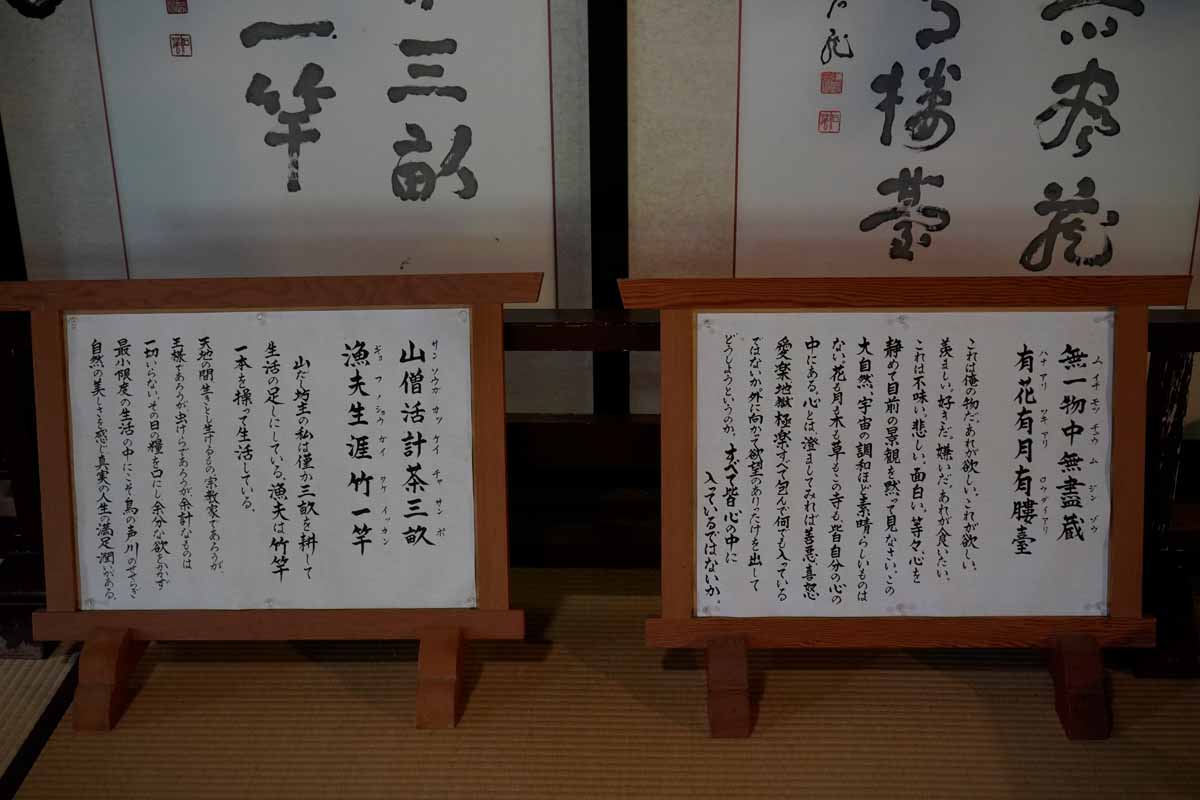 無盡藏
有樓臺
三畝
一竿
無一物中無盡蔵
ムイチモツチュウムジンゾウ
有花有月有膢臺
ハナアリツキアリロウダイアリ
これは俺の物だ、あれが欲しい、これが欲しい、
羨ましい、好きだ、嫌いだ、あれが食いたい、
これは不味い、悲しい、面白い、等々、心を
静めて目前の景観を黙って見なさい、この
大自然、宇宙の調和ほど素晴らしいものは
ない、花も月も木も草もこの寺も皆自分の心の
中にある。心とは、澄ましてみれば善悪、喜怒
愛楽、地獄極楽すべて包んで何でも入っている
ではないか、外に向かって欲望のありったけを出して
どうしようというのか、すべて皆心の中に
入っているではないか。
山僧活計茶三畝
サンソウガカッケイチャサンポ
漁夫生涯竹一竿
ギョフノショウガイタケイッカン
山だし坊主の私は僅か三畝を耕して
生活の足しにしている。漁夫は竹竿
一本を操って生活している。
天地の間、生きとし生けるもの宗教家であろうが
王様であろうが虫けらであろうが余計なものは
一切いらない。その日の糧を口にし余分な欲をかかず
最小限度の生活の中にこそ鳥の声、川のせせらぎ
自然の美しさを感じ真実の人生の満足、潤いがある。